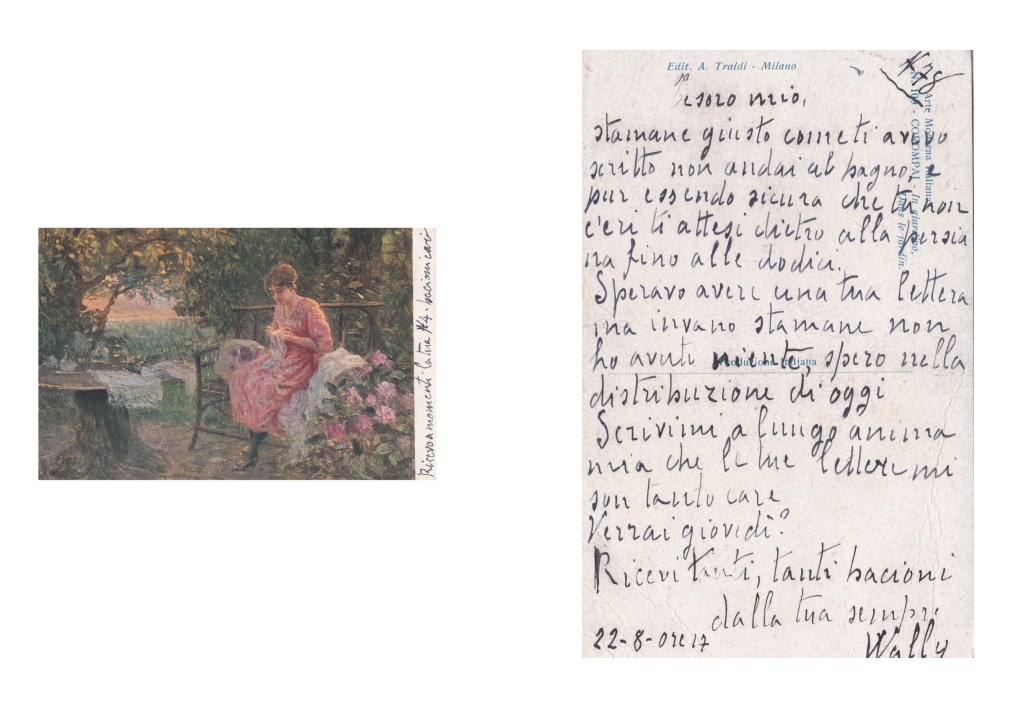 Ricevo a momenti la tua N4. bacimi cari
Edit. A. Traldi - Milano
N78
Arte Moderna Italiana
N. 103 - COROMPAI - In giardino.
Dans le jardin.
Tesoro mio,
stamane giusto come ti avevo
scritto non andai al bagno, e
pur essendo sicura che tu non
c'eri ti attesi dietro alla persia
na fino alle dodici.
Speravo avere una tua lettera
ma invano stamane non
ho avuti niente, spero nella
Produzione Italiana
distribuzione di oggi
Scrivimi a lungo anima
mia che le tue lettere mi
son tanto care
Verrai giovedì?
Ricevi tanti, tanti bacioni
dalla tua sempre
22-8-ore 17
Wally